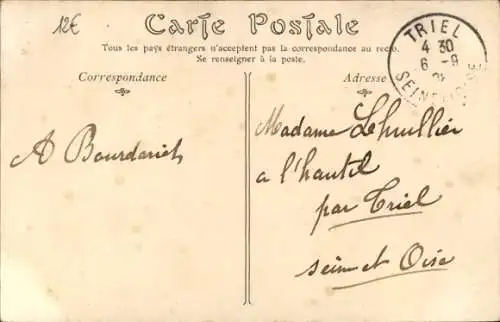 12€
Carte Postale
Tous les pays étrangers n'acceptent pas la correspondance au recto.
Se renseigner à la poste.
Correspondance
Adresse
TRIEL
4 30
6 - 9
SEINE
OISE
A Bourdariet
Madame Lhuillier
a l'hautil
par Triel
seine et Oise